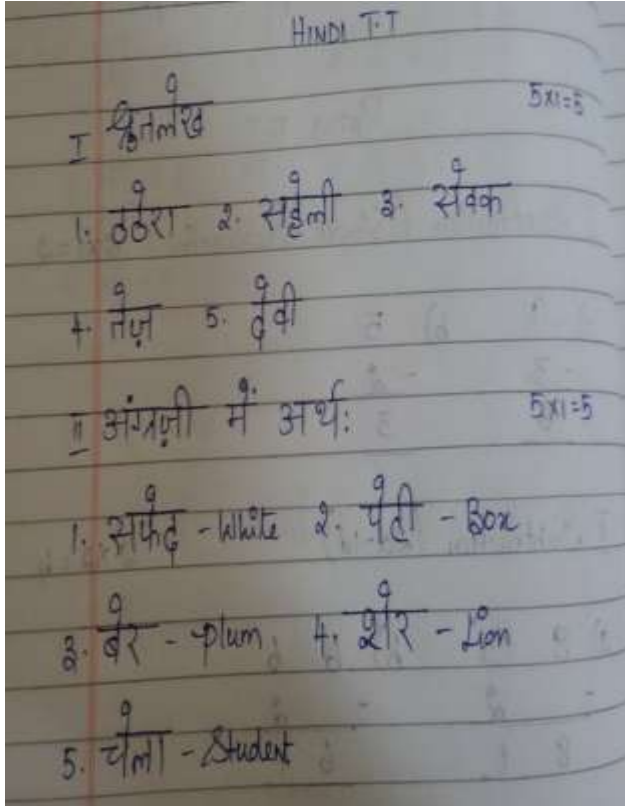 HINDI T.T
I श्रुतलेख 5x1=5
1. ठठेरा 2. सहेली 3. सेवक
4. तेज़ 5. देवी
II अंग्रज़ी में अर्थ: 5x1=5
1. सफेद - White 2. पेटी - Box
3. बेर - plum 4. शेर - Lion
5. चेला - Student